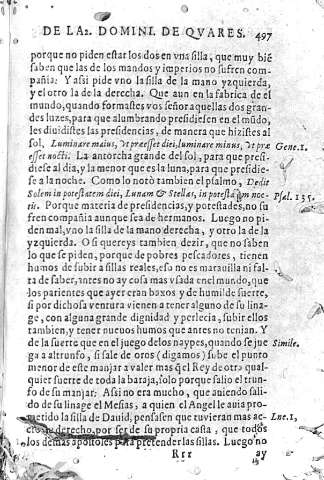 DE LA 2. DOMINI. DE QVARES. 497
porque no piden estar los dos en vna silla, que muy biē
saben que las de los mandos y imperios no sufren com-
pañia: Y assi pide vno la silla de la mano yzquierda,
y el otro la de la derecha. Que aun en la fabrica de el
mundo, quando formastes vos señor aquellas dos gran-
des luzes, para que alumbrando presidiessen en el mūdo,
les diuidistes las presidencias, de manera que hizistes al
sol, Luminare maius, vt præesset diei, luminare minus, vt præ Gene.1.
esset nocti. La antorcha grande del sol, para que presi-
diesse al dia, y la menor que es la luna, para que presidie-
se a la noche. Como lo notò tambien el psalmo, Dedit
Solem in potestatem diei, Lunam & Stellas, in potestatem noc- Psal. 135.
tis. Porque materia de presidencias, y potestades, no su
fren compañia aunque sea de hermanos. Luego no pi-
den mal, vno la silla de la mano derecha, y otro la de la
yzquierda. O si quereys tambien dezir, que no saben
lo que se piden, porque de pobres pescadores, tienen
humos de subir a sillas reales, esa no es marauilla ni fal-
ta de saber, antes no ay cosa mas vsada en el mundo, que
los parientes que ayer eran baxos y de humilde suerte,
si por dichosa ventura vienen a tener alguno de su lina-
ge, con alguna grande dignidad y perlecia, subir ellos
tambien, y tener nueuos humos que antes no tenian. Y
de la suerte que en el juego delos naypes, quando se jue Simile.
ga a altrunfo, si sale de oros (digamos) sube el punto
menor de este manjar a valer mas q̃ el Rey de otra qual-
quier suerte de toda la baraja, solo porque salio el trun-
fo de su manjar: Assi no era mucho, que auiendo sali-
do de su linage el Mesias, a quien el Angel le auia pro-
metido la silla de Dauid, pensasen que tuuieran mas ac- Luc.1,
cion y derecho, por ser de su propria casta, que todos
los demas apostoles para pretender las sillas. Luego no
Rrr ay